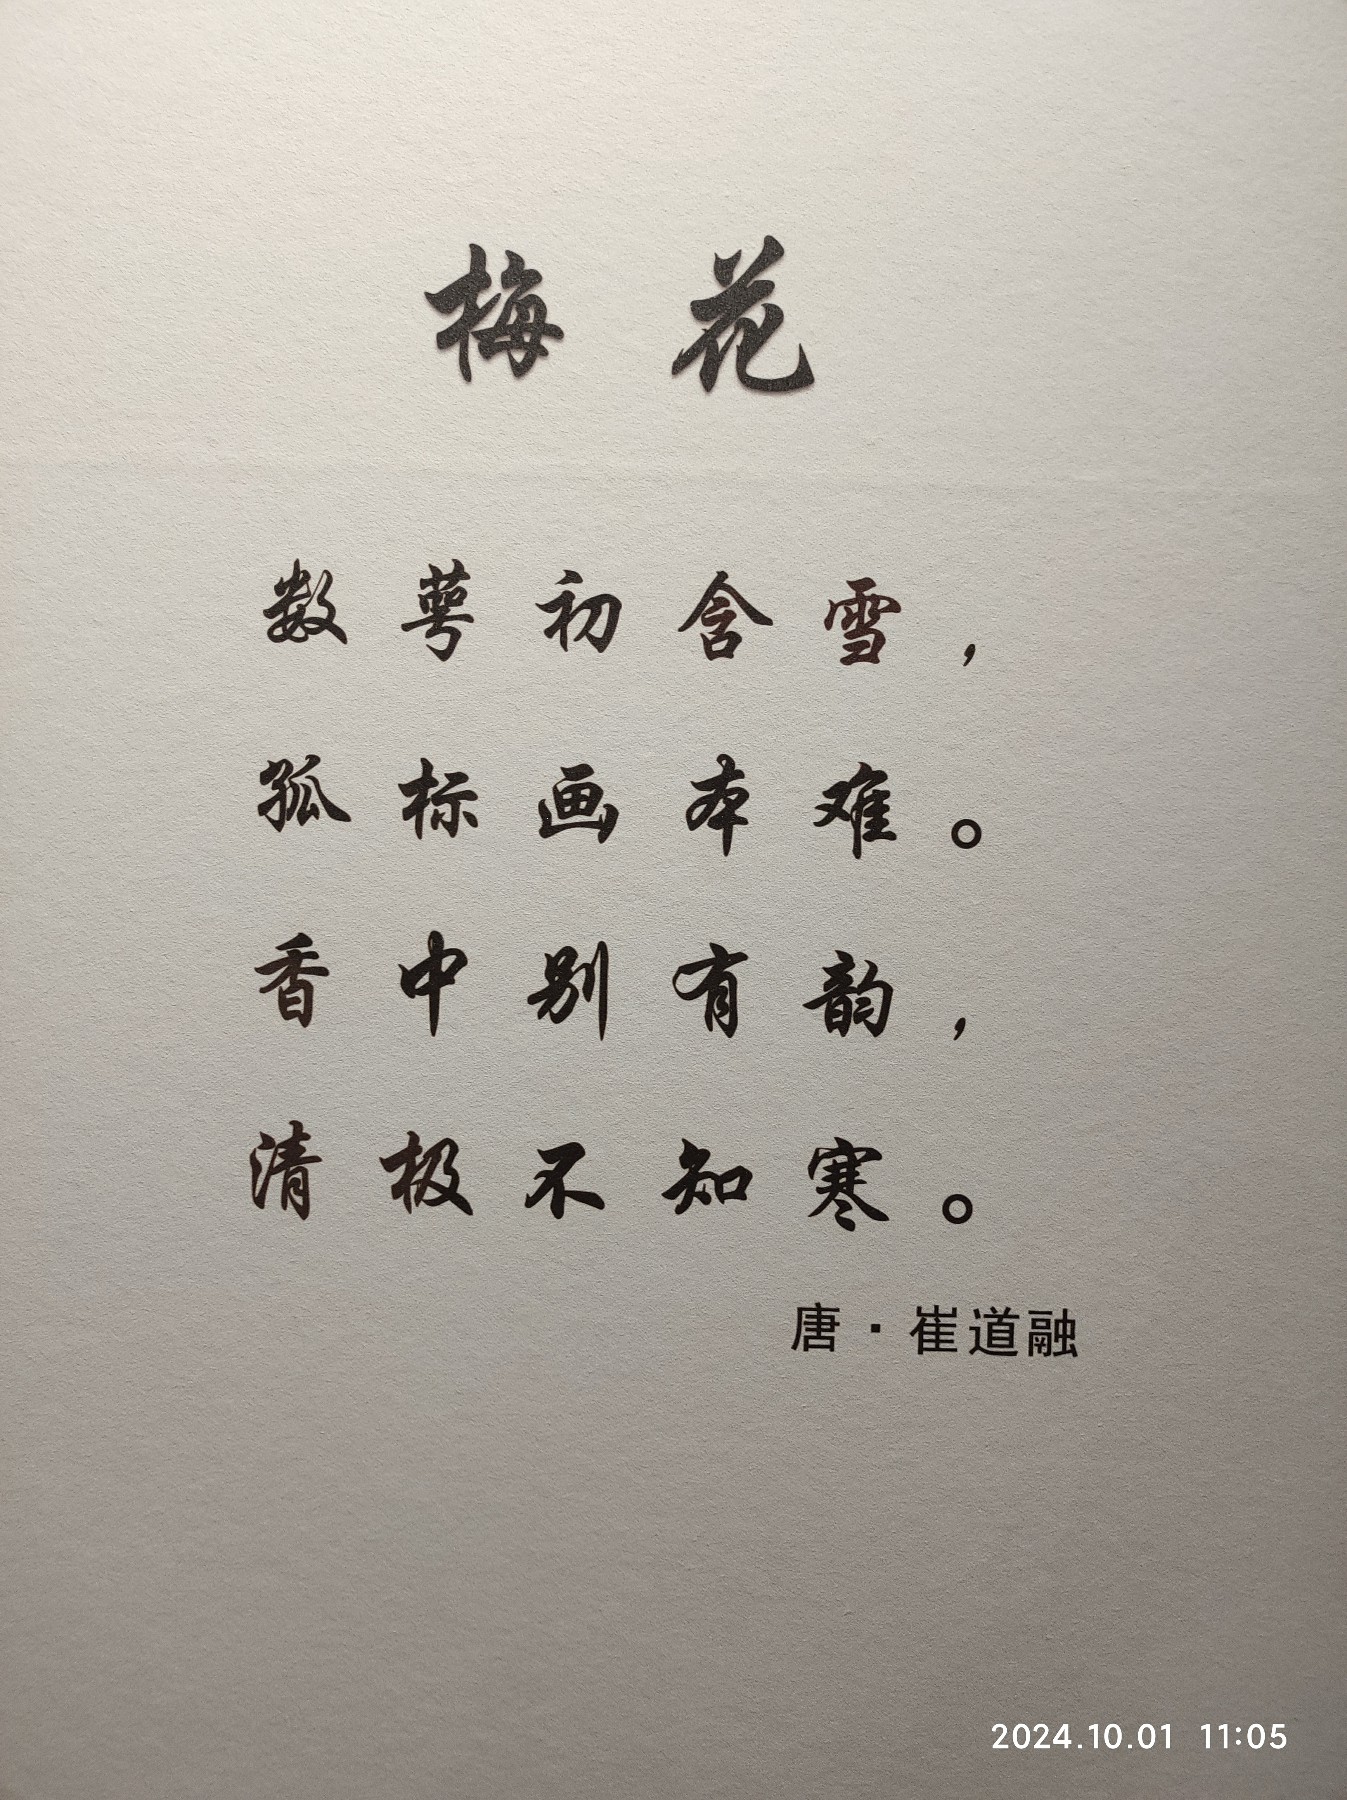 梅花
数萼初含雪，
孤标画本难。
香中别有韵，
清极不知寒。
唐·崔道融
2024.10.01 11:05